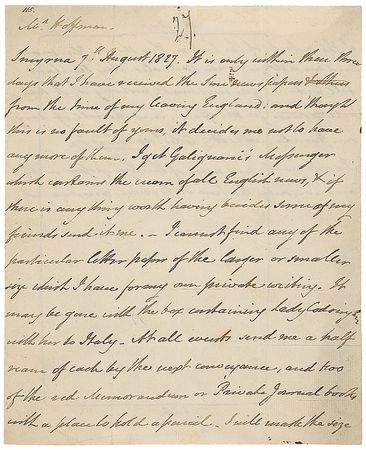 115.
27.
Mr. Hoffman.
Smyrna 7th August 1827. It is only within these three
days that I have received the Sun newspapers & others
from the time of my leaving England: and though
this is no fault of yours, it decides me not to have
any more of them. I get Galignani's Messenger
which contains the cream of all English news, & if
there is any thing worth having besides some of my
friends send it me. – I cannot find any of the
particular letter paper of the larger or smaller
size which I have for my own private writing. It
may be gone with the box containing Lady Codrington
with her to Italy – At all events send me a half
ream of each by the next conveyance, and too
of the red Memorandum or Private Journal books
with a place to hold a pencil. I will mark the size